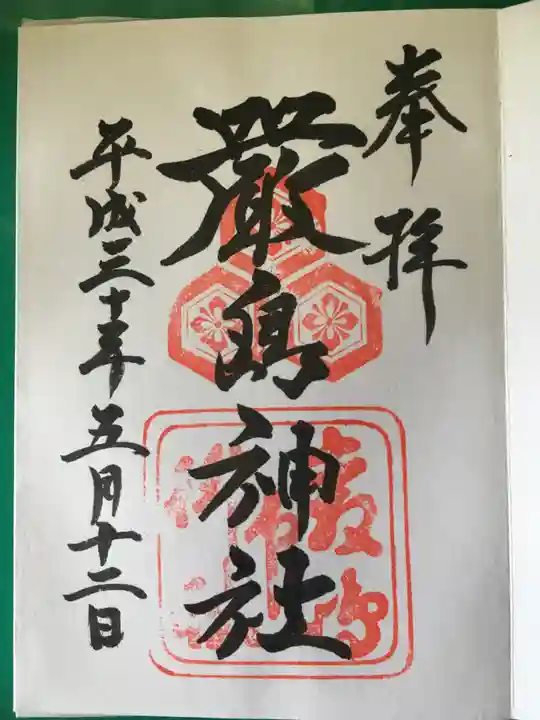 奉拝
嚴島神社
平成三十年五月十二日